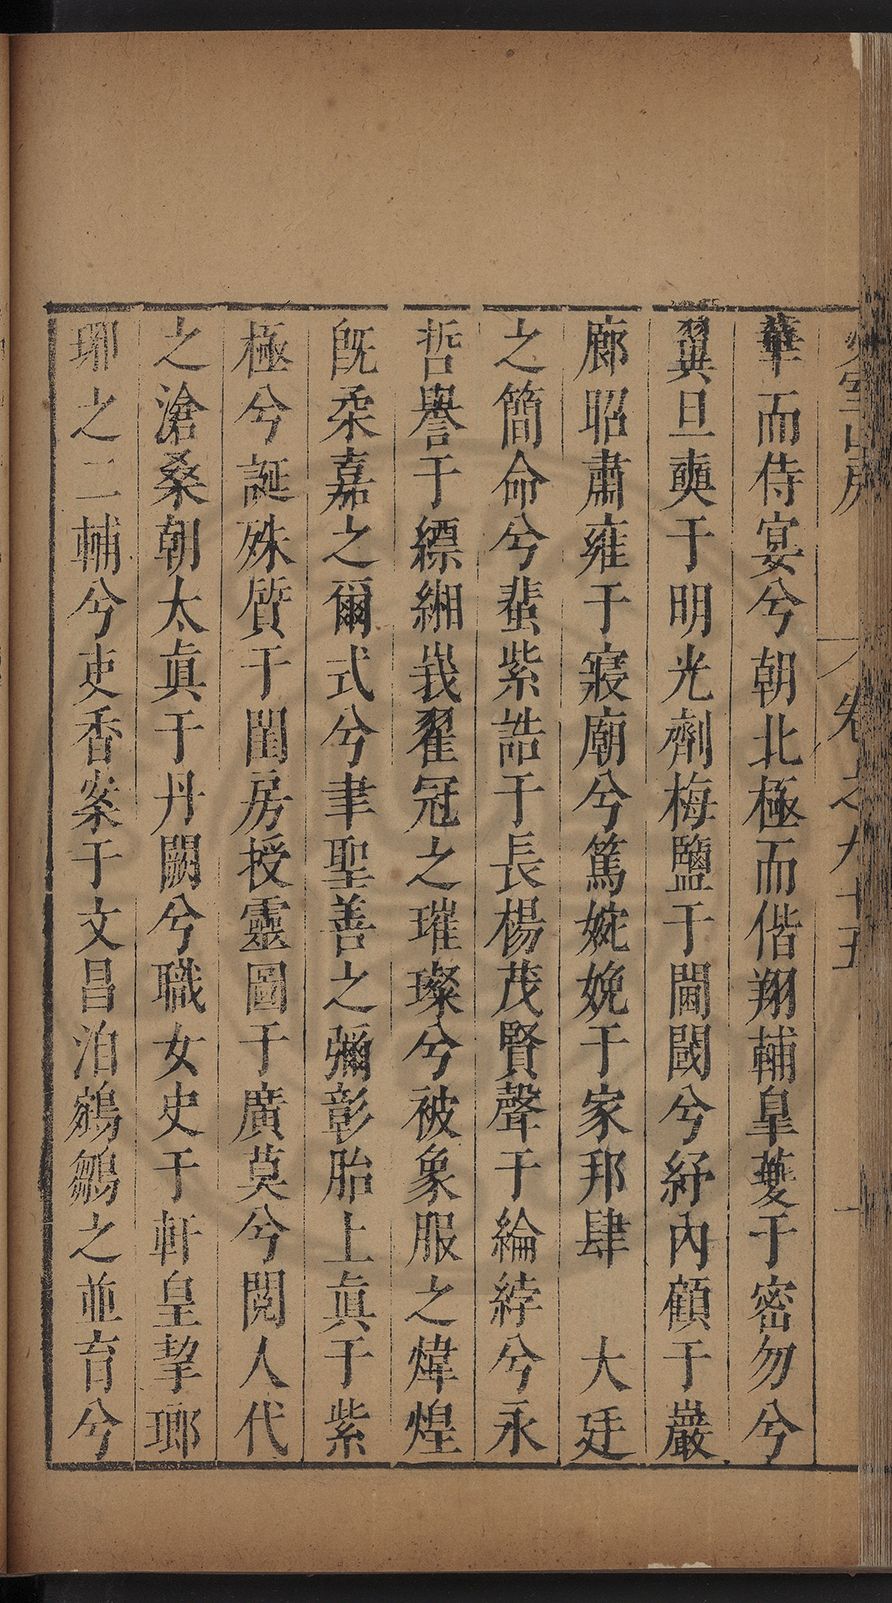 室山房
卷之九十五
華而侍宴兮朝北極而偕翔輔皇夔于密勿兮
翼旦奭于明光劑梅鹽于閫閾兮紓內顧于巖
廊昭肅雍于寢廟兮篤婉娩于家邦肆　大廷
之簡命兮蜚紫誥于長楊茂賢聲于綸綍兮永
哲譽于縹緗峩翟冠之璀璨兮被象服之煒煌
旣柔嘉之爾式兮聿聖善之彌彰胎上眞于紫
極兮誕殊質于閨房授靈圖于廣莫兮閱人代
之滄桑朝太眞于丹闕兮職女史于軒皇挈瑯
琊之二輔兮吏香案于文昌洎鵷鶵之並育兮